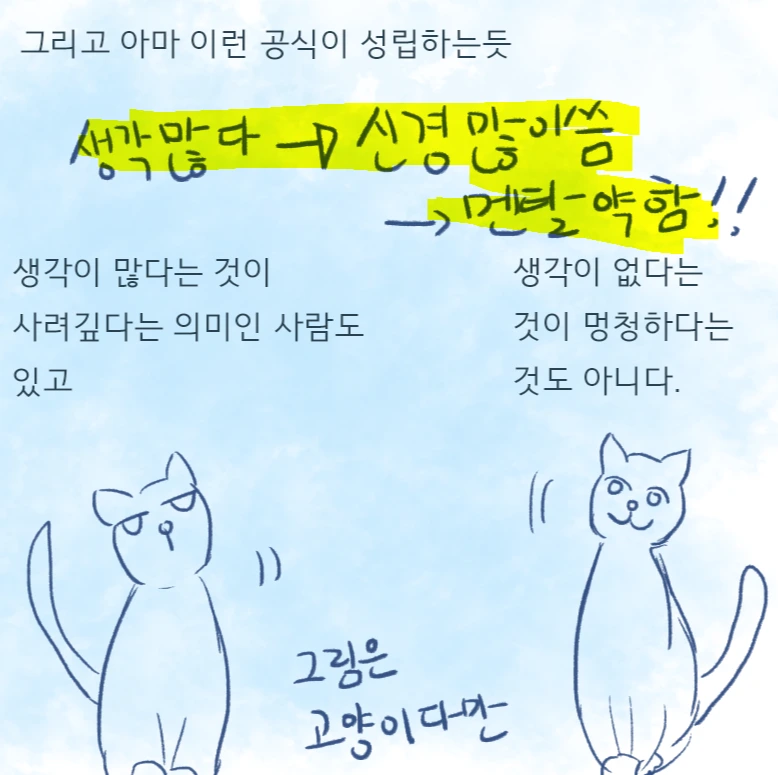 그리고 아마 이런 공식이 성립하는듯
생각많다 → 신경많이씀
→ 멘탈약함!!
생각이 많다는 것이
사려깊다는 의미인 사람도
있고
생각이 없다는
것이 멍청하다는
것도 아니다.
그림은
고양이다만